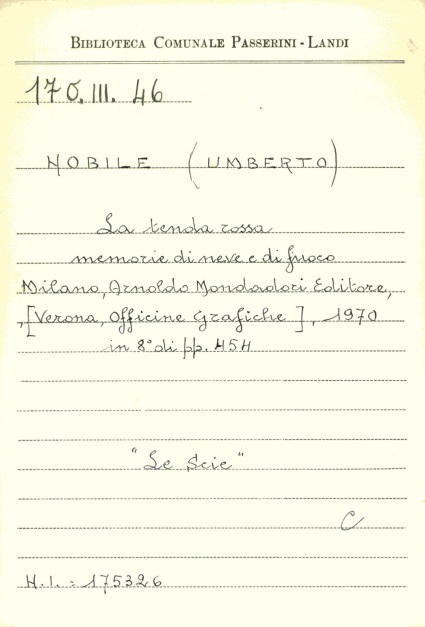 BIBLIOTECA COMUNALE PASSERINI - LANDI
170.III. 46
NOBILE (UMBERTO)
La tenda rossa
memorie di neve e di fuoco
Milano, Arnoldo Mondadori Editore,
,[Verona, Officine Grafiche ], 1970
in 8° di pp. 454
"Le Scie"
C
N.I. = 175326